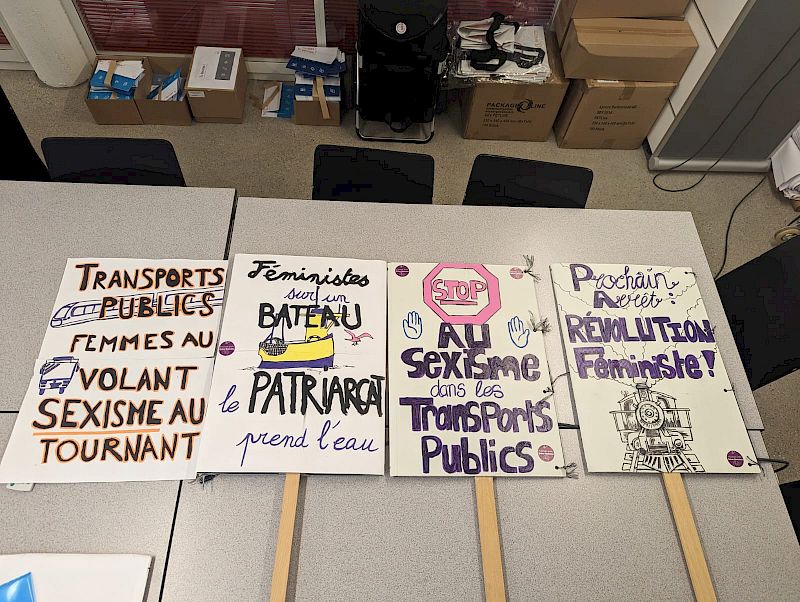 TRANSPORTS
PUBLICS
FEMMES AU
VOLANT
SEXISME AU
TOURNANT
Féministes
sur un
BATEAU
le PATRIARCAT
prend l'eau
STOP
AU
SEXISME
dans les
TRANSPORTS
PUBLICS
Prochain
Arrêt :
RÉVOLUTION
Féministe !
PACKAGING LINE